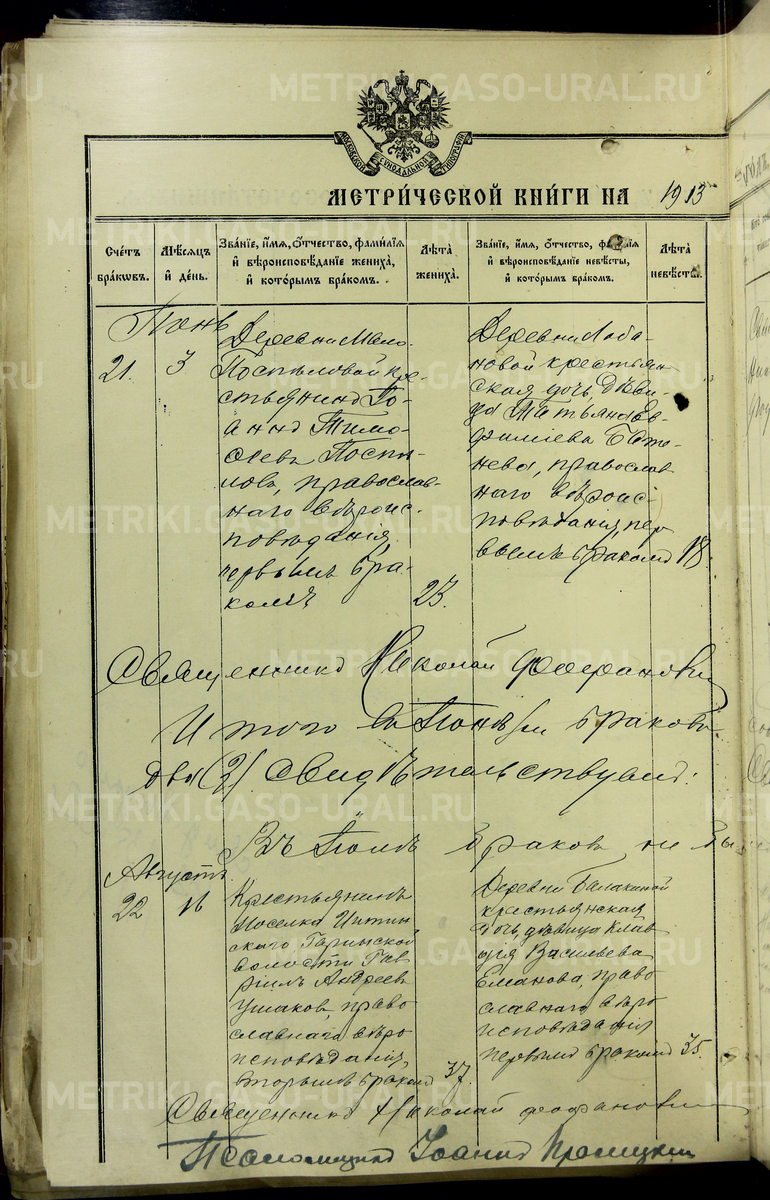 МОСКОВСКОЙ СѴНОДАЛЬНОЙ ТИПОГРАФІИ
МЕТРИ́ЧЕСКОЙ КНИ́ГИ НА 1913
Сче́тъ бра́кѡвъ.
Мѣ́сяцъ и҆ де́нь.
Зва́нїе, и҆́мя, ѻ҆́тчество, фами́лїя
и҆ вѣроисповѣ́данїе жениха̀,
и҆ кото́рымъ бра́комъ.
Лѣ́та жениха̀.
Зва́нїе, и҆́мя, ѻ҆́тчество, фами́лїя
и҆ вѣроисповѣ́данїе невѣ́сты,
и҆ кото́рымъ бра́комъ.
Лѣ́та невѣ́сты.
Іюнь
21.
3
Деревни Мало
Поспѣловой кре-
стьянинъ Іо-
аннъ Тимо-
ѳеевъ Поспѣ
ловъ, православ-
наго вѣроис-
повѣданія,
первымъ бра-
комъ
23.
Деревни Лоба-
новой крестьян-
ская дочь, дѣви-
ца Татьяна Ев-
фиміева
православ
наго вѣроис-
повѣданія, пер
вымъ бракомъ
18.
Священникъ Николай Феофановъ
Итого въ Іюнѣ м. браковъ
два (2) свидѣтельствуемъ:
Въ Іюлѣ браковъ не бы
Августъ
22
16
Крестьянинъ
поселка
Гаринской
волости Гав
ріилъ Андреев
Ушаков, право
славнаго вѣро
исповѣданія,
вторымъ бракомъ
37.
Деревни Балакиной
крестьянская
дочь, дѣвица Клав
дія Васильева
Еманова, право
славнаго вѣро
исповѣданія
первымъ бракомъ
35.
Священникъ Николай Феофановъ
Псаломщикъ Іоаннъ
METRIKI.GASO-URAL.RU